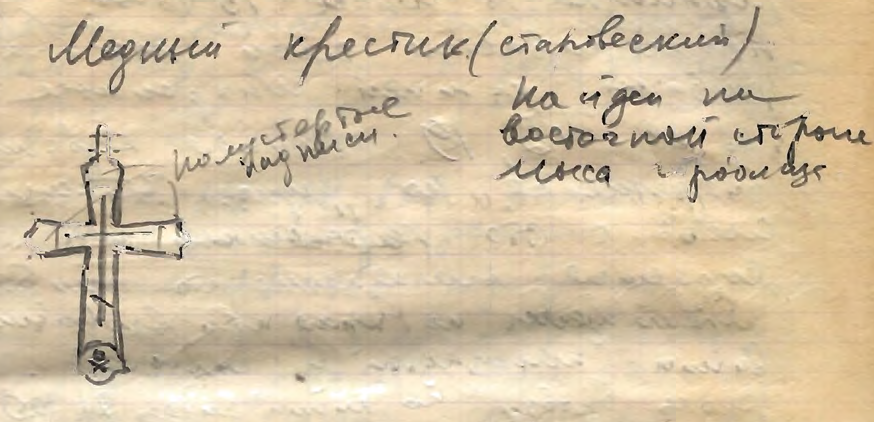 Медный крестик (староверский)
полустертые
надписи.
Найден на
восточной стороне
мыса